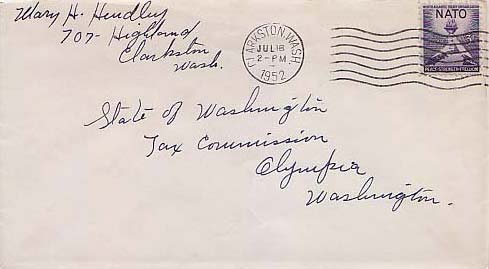 Mary H. Hendley
707- Highland
Clarkston
Wash.
CLARKSTON, WASH.
JUL 18
2-PM
1952
NATO
PEACE-STRENGTH-FREEDOM
State of Washington
Tax Commission
Olympia
Washington.